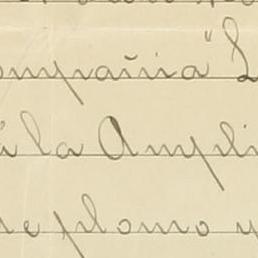 ompañia "L
á la Ampli
de plomo y